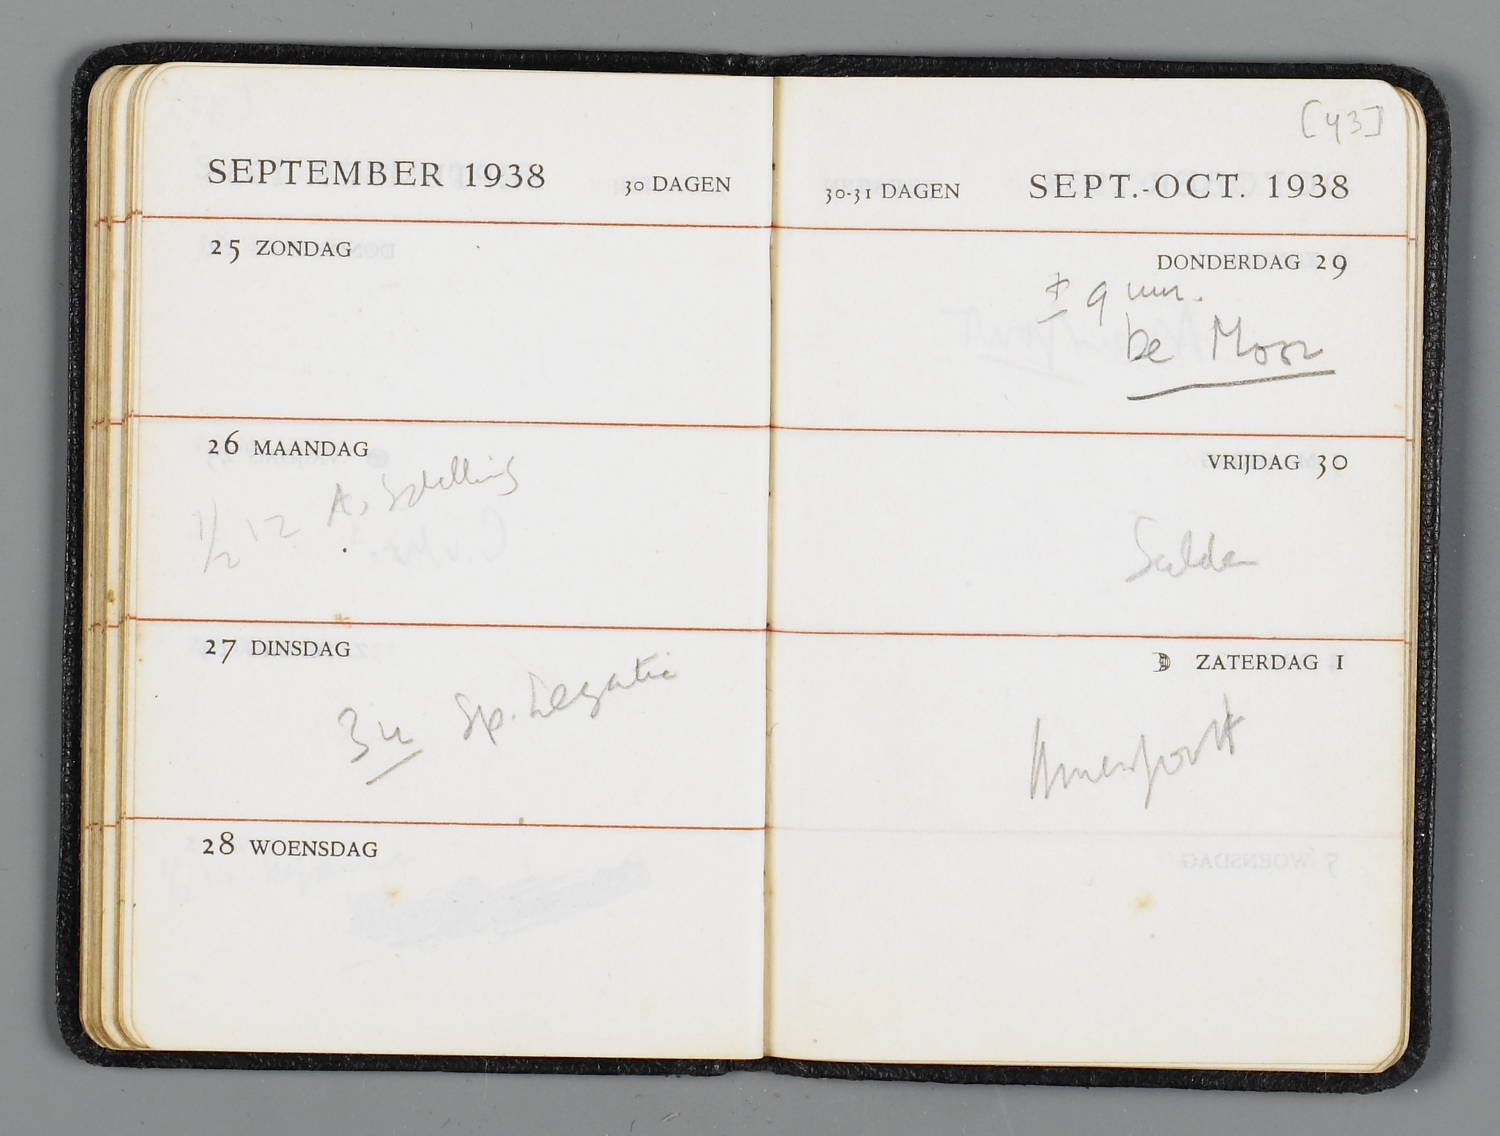 SEPTEMBER 1938 30 DAGEN
25 ZONDAG
26 MAANDAG
1/2 12 A. Schelling
27 DINSDAG
3 u Sp. Legatie
28 WOENSDAG
[43]
30-31 DAGEN SEPT.-OCT. 1938
DONDERDAG 29
± 9 uur.
De Moor
VRIJDAG 30
ZATERDAG 1
Amersfoort